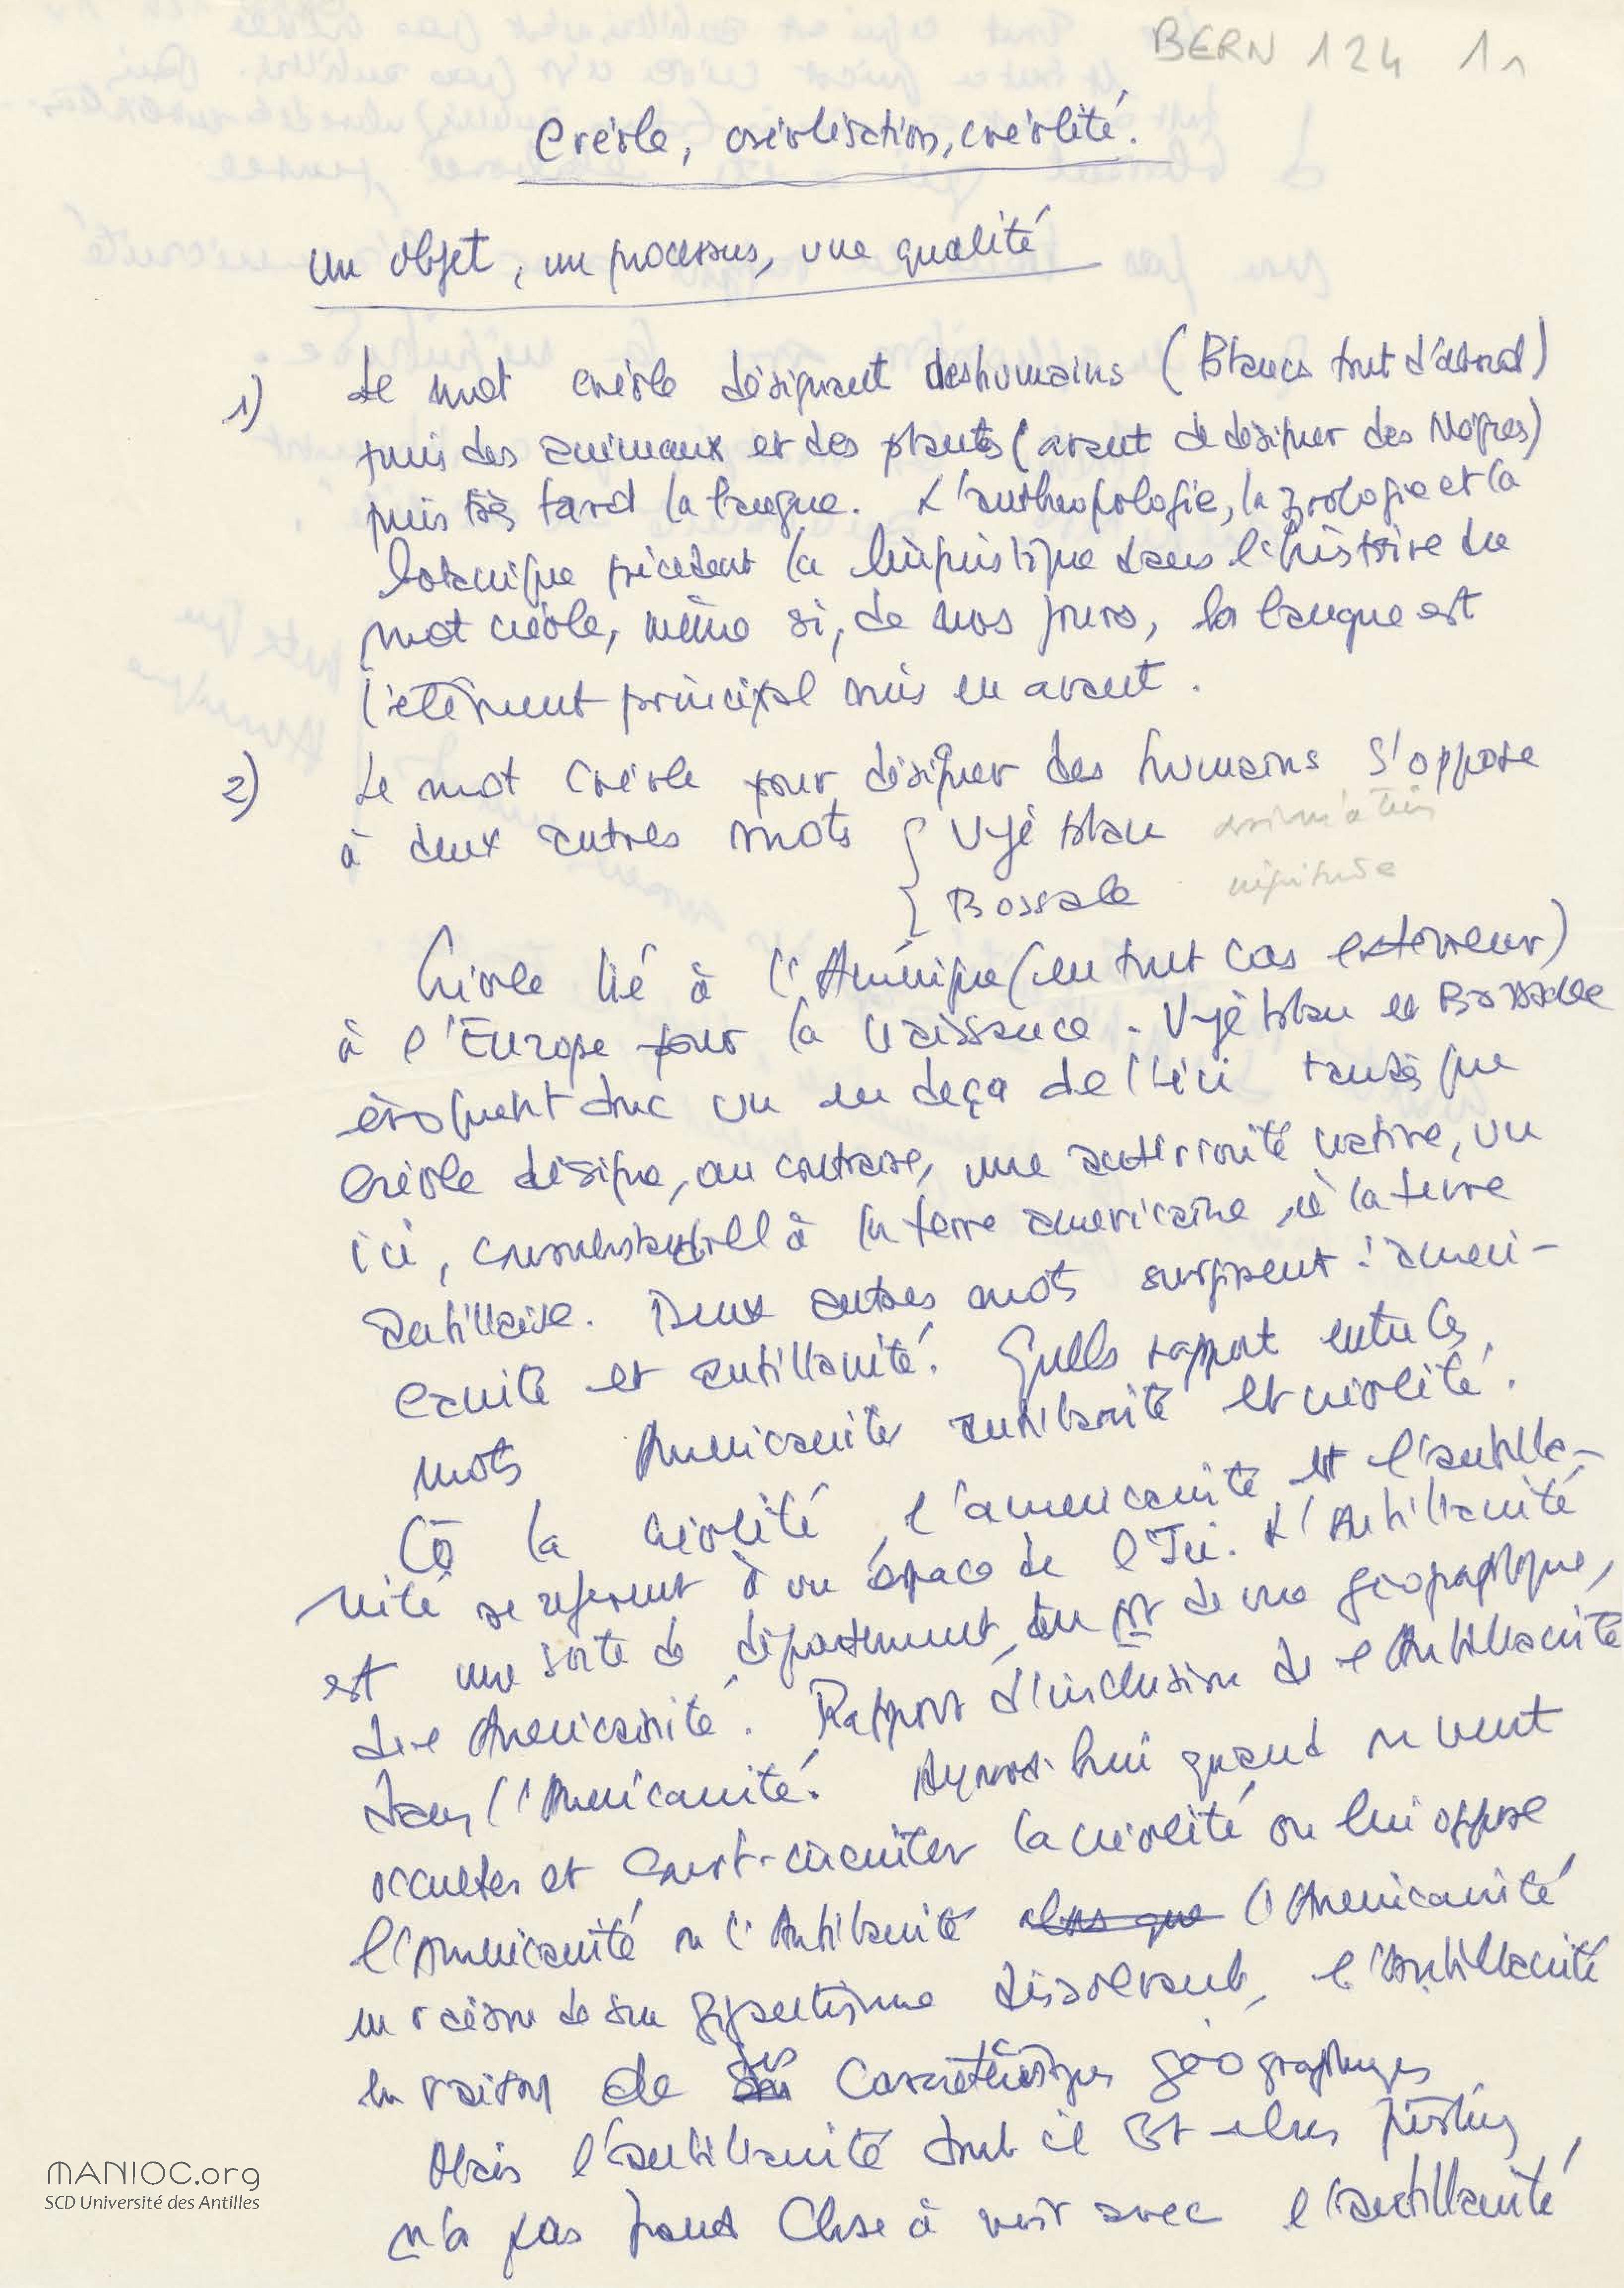 BERN 124 11
Créole, créolisation, créolité.
Un objet, un processus, une qualité
1) Le mot créole désignant des humains (Blancs tout d'abord)
puis des animaux et des plantes (avant de désigner des Nègres)
puis très tard la langue. L'anthropologie, la zoologie et la
botanique précèdent la linguistique dans l'histoire du
mot créole, même si, de nos jours, la langue est
l'élément principal mis en avant.
2) Le mot Créole pour désigner des humains s'oppose
à deux autres mots { Vyé blan assimilation
{ Bossale négritude
Créole lié à l'Amérique (en tout cas extérieur)
à l'Europe pour la naissance. Vyé blan et Bossale
évoquent donc un en deça de l'ici tandis que
Créole désigne, au contraire, une antériorité native, un
ici, consubstantiel à la terre americaine, à la terre
antillaise. Deux autres mots surgissent : ameri-
canité et antillanité. Quels rapport entre ces
mots Americanité antillanité et créolité.
Cō la créolité, l'americanité et l'antilla-
nité se referent à un éspace de l'Ici. L'Antillanité
est une sorte de département, du pt de vue géographique,
de l'Americanité. Rapport d'inclusion de l'Antillanité
dans l'Americanité. Aujourd'hui quand on veut
occulter et court-circuiter la créolité on lui oppose
l'Americanité ou l'Antillanité alors que l'Americanité
en raison de son gigantisme dissolvant, l'Antillanité
en raison de ses caractéristiques géographiques
Mais l'antillanité dont il est alors question
n'a pas grand Chose à voir avec l'antillanité
MANIOC.org
SCD Université des Antilles